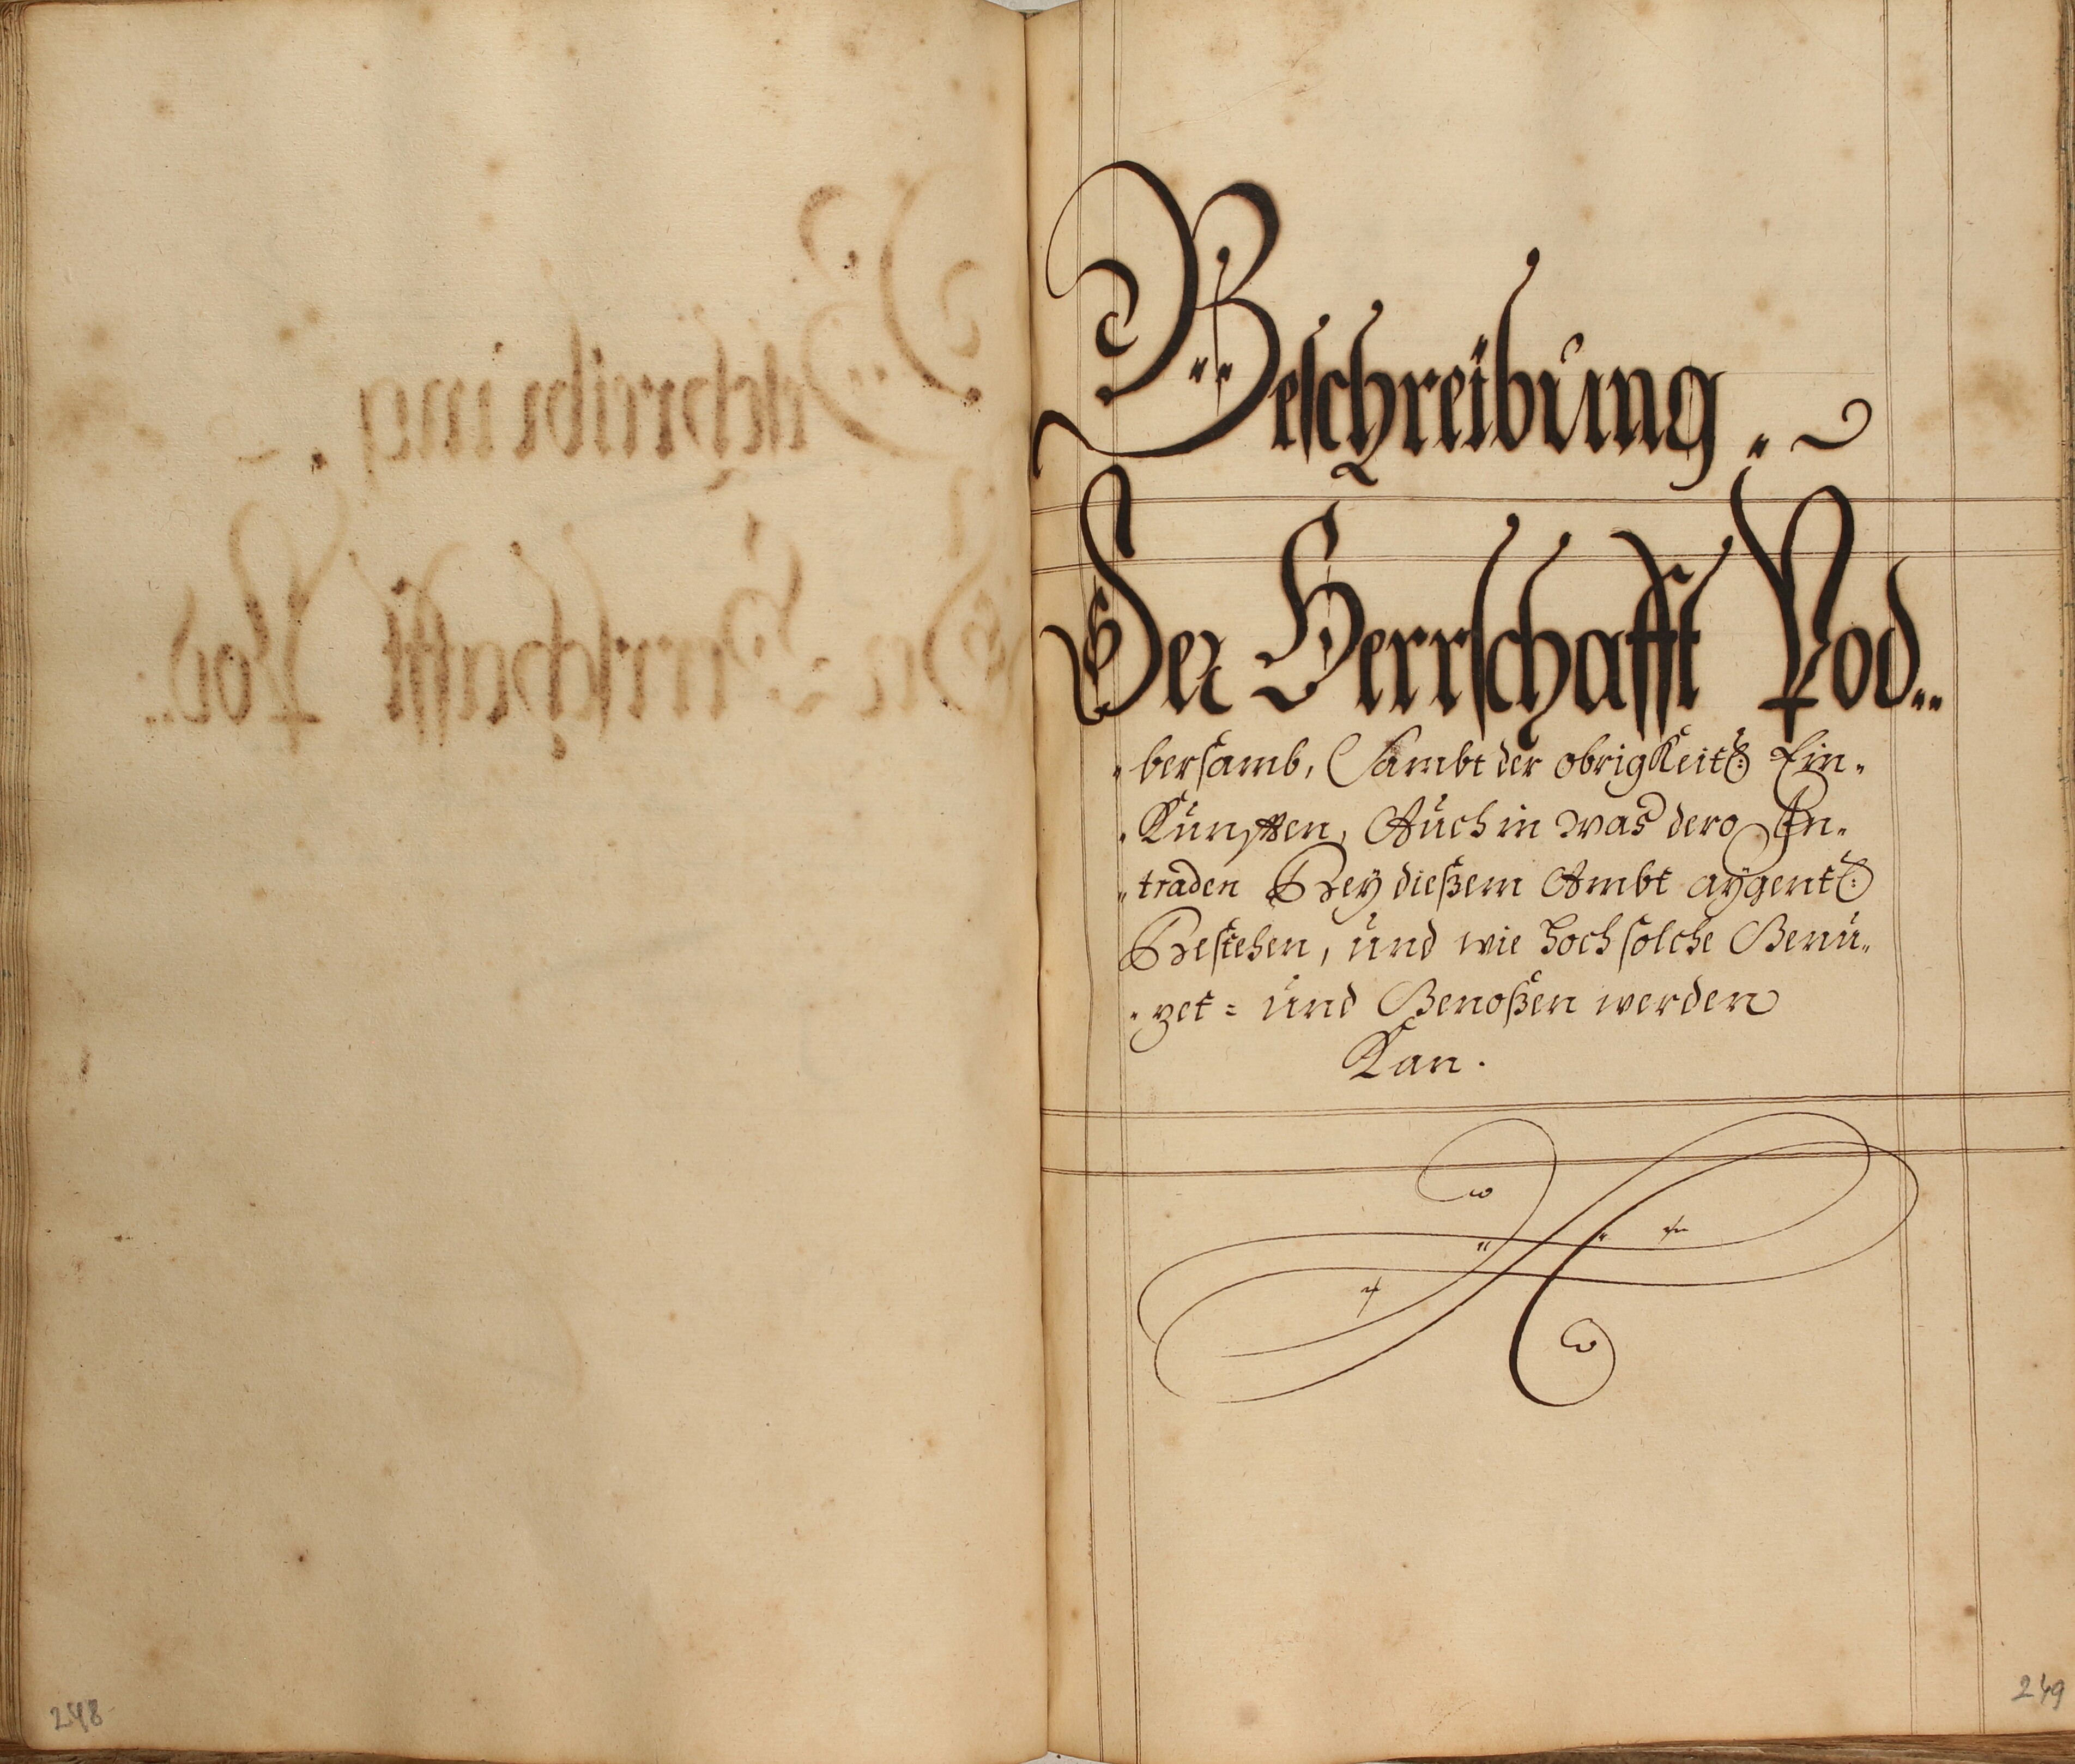 Beschreibung.
Der Herrschafft Pod..
bersamb, Sambt der obrigkeitl: Ein-
Künfften, Auch in was dero In-
traden Bey dießem Ambt aÿgentl:
Bestehen, und wie hoch solche Benu-
zet = und Genoßen werden
Kan.
248
249